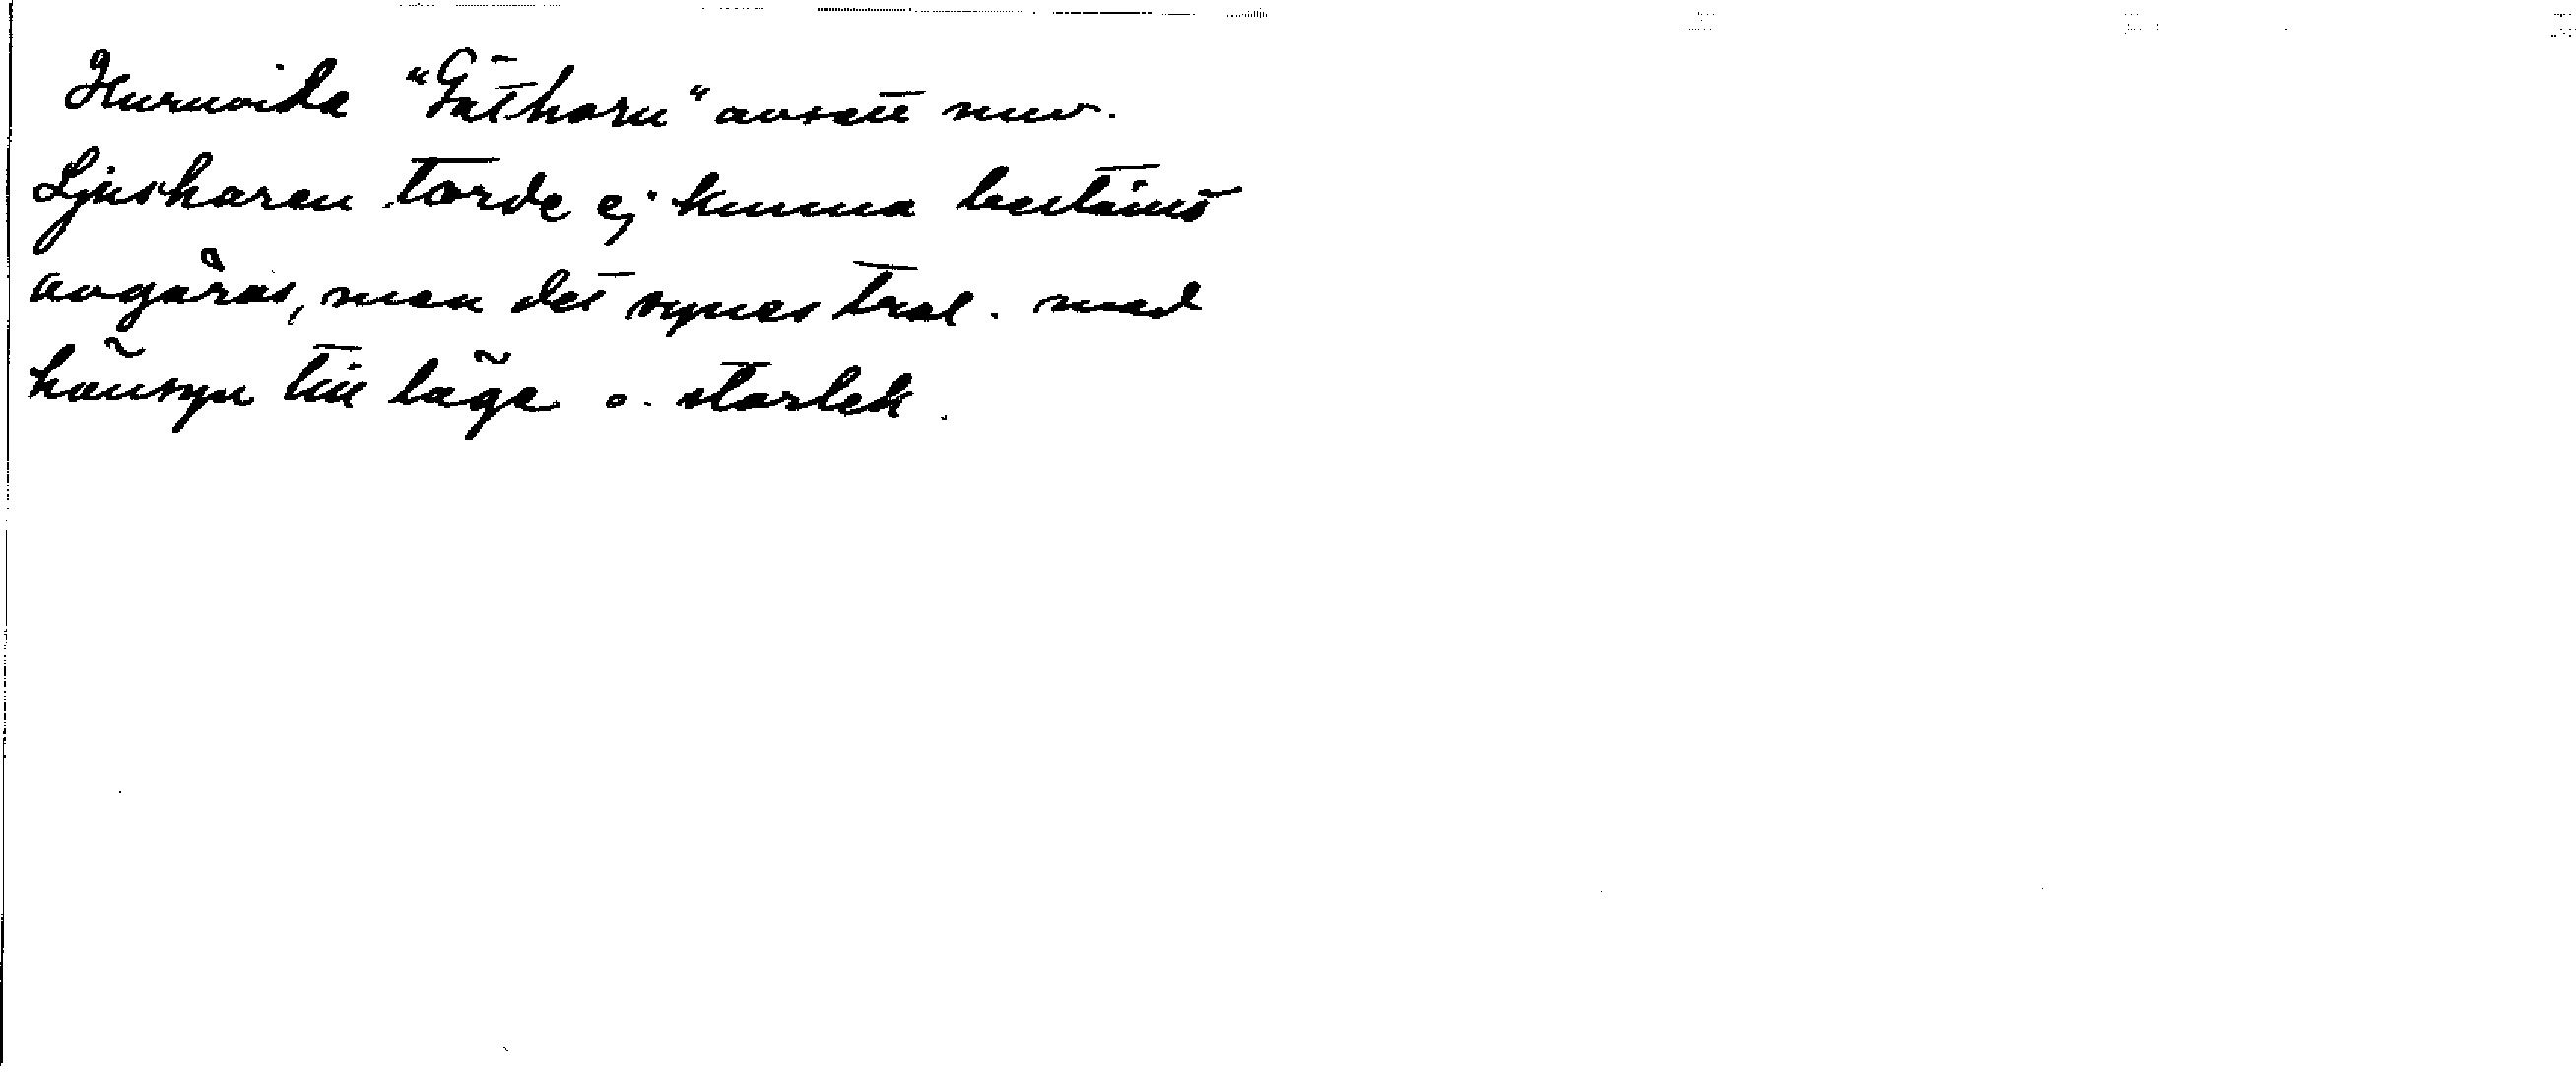 Huruvida "Gåtharu" avsett nuv.
Ljusharen torde ej kunna bestämt
avgöras, men det synes trol. med
hänsyn till läge o. storlek.